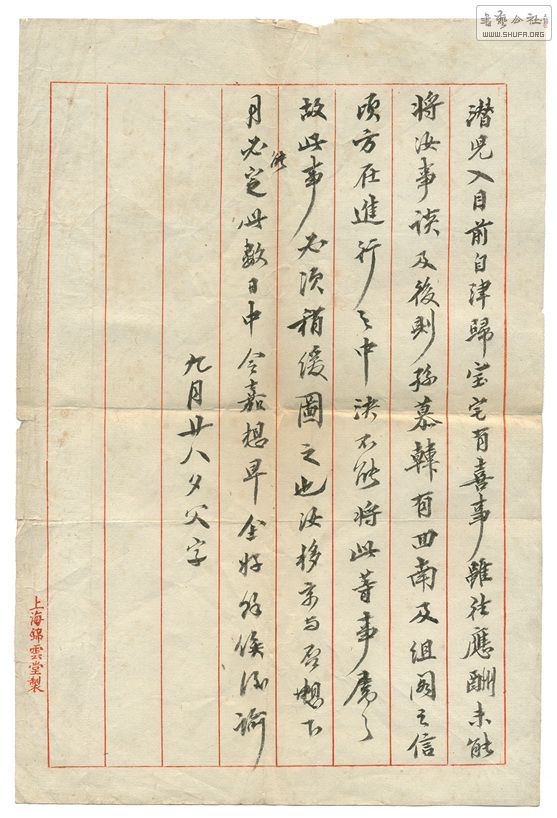 潛兒入目前自津歸宝宅有喜事雖往應酬未能
將汝事談及後則孫慕韓有回南及組閣之信
頃方在進行之中決不能將此等事
故此事必須稍緩圖之也汝移京与否想下
月必能定此數日中令嘉想早全好餘俟後諭
九月廿八夕父字
上海錦雲堂製
书艺公社
WWW.SHUFA.ORG